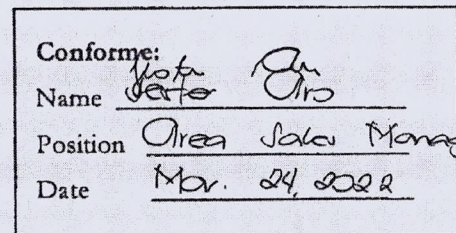 Conforme:
Name
Position Area Sales Manag
Date Mar. 24, 2022